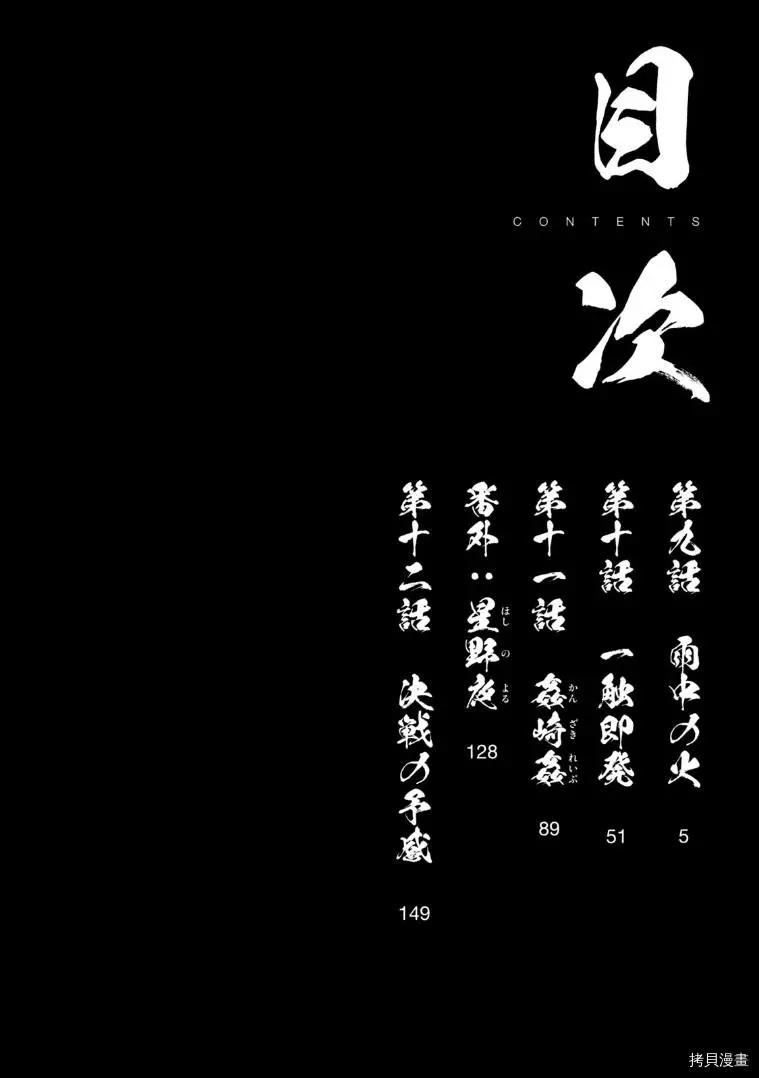 目次
CONTENTS
第九話 雨中の火 5
第十話 一触即発 51
第十一話 姦崎姦 89
かんざきれいぷ
番外:星野夜 128
ほしのよる
第十二話 決戦の予感 149
拷貝漫畫